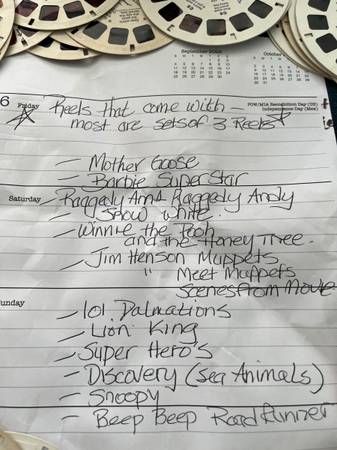 September
October
6 Friday
POW/MIA Recognition Day (US)
Independence Day (Mex)
Reels that come with -
most are sets of 3 Reels
- Mother Goose
- Barbie SuperStar
Saturday
- Raggedy Ann & Raggedy Andy
- Snow White
- Winnie the Pooh
and the Honey Tree.
- Jim Henson Muppets
" Meet Muppets
Scenes from Movie
unday
- 101 Dalmations
- Lion King
- Super Hero's
- Discovery (Sea Animals)
- Snoopy
- Beep Beep Road Runner